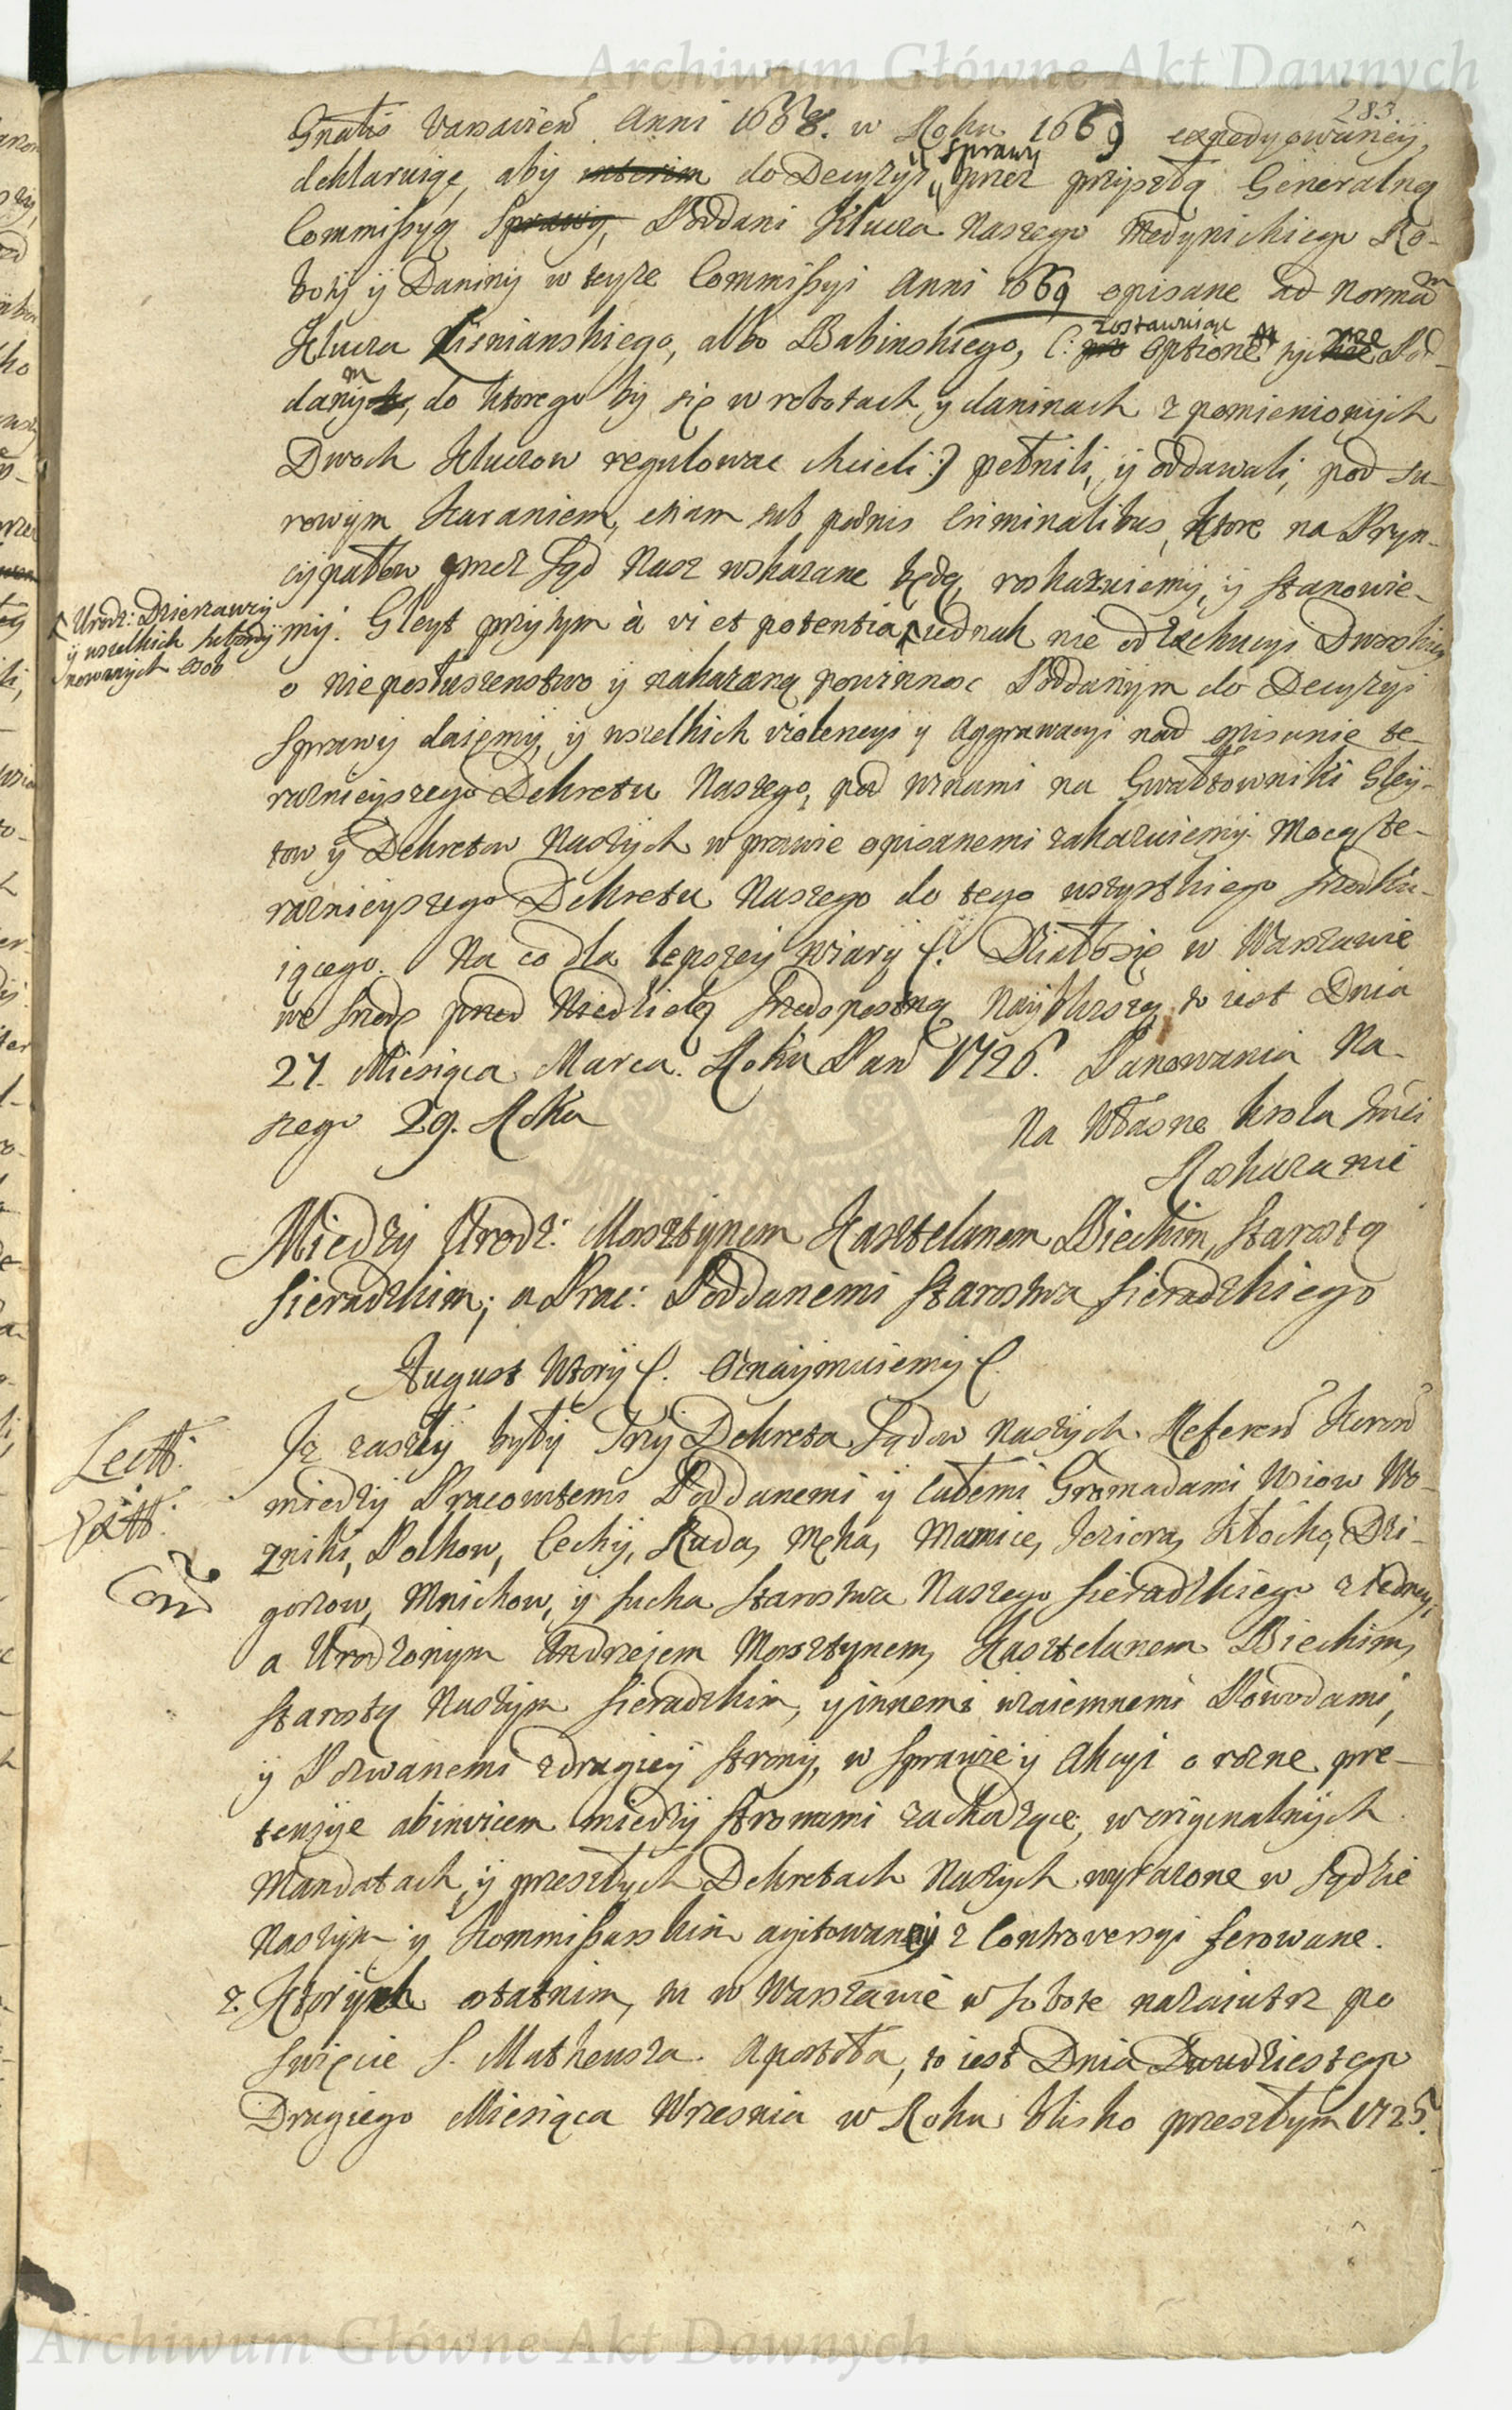 Archiwum Główne Akt Dawnych
283
Gnalis Varsavien Anni 1668. w Roku 1669 expedyowaney,
deklaruiąc, aby interim do Decyzyi sprawy przez przyszłą Generalną
Commissyą Sprawy, Poddani Klucza Naszego Medynickiego Ro-
boty y Daniny w teyże Commissyi Anni 1669 opisane ad normam
Klucza Lisnianskiego, albo Babinskiego, (: pro zostawuiąc optione tychże Pod-
danym, do ktorego by się w robotach y daninach z pomienionych
Dwoch Kluczow regulowac chcieli :) pełnili, y oddawali, pod su-
rowym karaniem, etiam sub poenis Criminalibus, ktore na Pryn-
cypałow przez Sąd Nasz wskazane będą, roskazuiemy, y stanowie-
my. Gleyt przytym à vi et potentia jednak nie od exekucyi Dworskiey
Urodz: Dzierzawcy
y wszelkich subordy
nowanych osob
o nieposłuszenstwo y nakazaną powinnosc Poddanym do Decyzyi
Sprawy daiemy, y wszelkich violencyi y Aggrawacyi nad opisanie te-
raznieyszego Dekretu Naszego, pod winami na Gwałtowniki Gley-
tow y Dekretow Naszych w prawie opisanemi zakazuiemy. Mocą te-
raznieyszego Dekretu Naszego do tego wszystkiego
iącego. Na co dla lepszey wiary &. Działo się w Warszawie
we srodę przed Niedzielą Srodopostną Naybliższą, to iest Dnia
27. Miesiąca Marca. Roku Pan 1726. Panowania Na-
szego 29. Roku
Na Własne Krola Jmci
Roskazanie
Miedzy Urodz: Morsztynem Kasztelanem Bieckim, Starostą
Sieradzkim; a Prac: Poddanemi Starostwa Sieradzkiego
August Wtory &. Oznaymuiemy &.
Lectt:
Iz zaszły były Trzy Dekreta Sądow Naszych Referen Koron
miedzy Pracowitemi Poddanemi y całemi Gromadami Wsiow Wo-
zniki, Polkow, Cechy, Ruda, Męka, Mamice, Jeziora, Kłocko, Dzi-
gorzow, Mnichow, y Sucha Starostwa Naszego Sieradzkiego z iedney,
a Urodzonym Andrzejem Morsztynem, Kasztelanem Bieckim,
Starostą Naszym Sieradzkim, y innemi wzaiemnemi Powodami,
y Pozwanemi z drugiey strony, w sprawie y Akcyi o rozne pre-
tensye abinvicem miedzy stronami zachodzące, w oryginalnych
Mandatach y przeszłych Dekretach Naszych wyrazone w Sądzie
Naszym y Kommissarskim agitowaney z Controversyi ferowane.
z. Ktorych ostatnim, tu w Warszawie w Sobote nazaiutrz po
Swięcie S. Matheusza Apostoła, to iest Dnia Dwudziestego
Drugiego Miesiąca Wrzesnia w Roku blisko przeszłym 1725.
Archiwum Główne Akt Dawnych